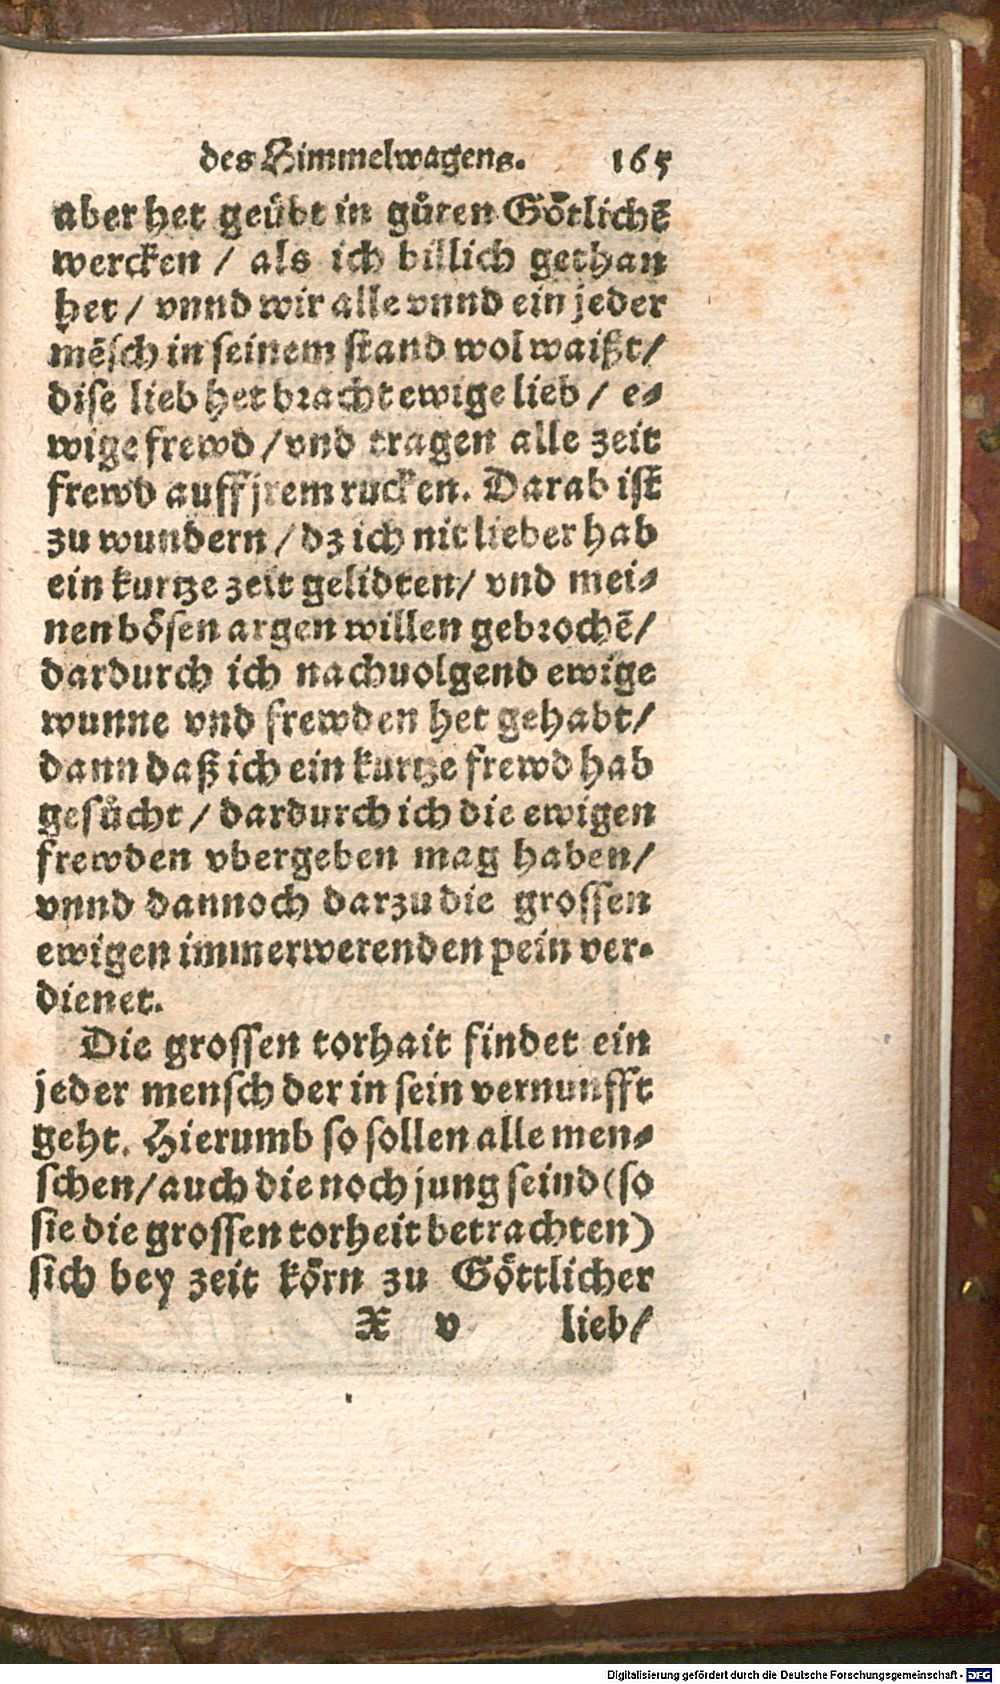 des Himmelwagens. 165
aber het geübt in gůten Götlichẽ
wercken / als ich billich gethan
het / vnnd wir alle vnnd ein jeder
mẽsch in seinem stand wol waißt /
dise lieb het bracht ewige lieb / e⸗
wige frewd / vnd tragen alle zeit
frewd auff jrem rucken. Darab ist
zu wundern / dz ich nit lieber hab
ein kurtze zeit gelidten / vnd mei⸗
nen bösen argen willen gebrochẽ /
dardurch ich nachuolgend ewige
wunne vnd frewden het gehabt /
dann daß ich ein kurtze frewd hab
gesůcht / dardurch ich die ewigen
frewden vbergeben mag haben /
vnnd dannoch darzu die grossen
ewigen immerwerenden pein ver⸗
dienet.
Die grossen torhait findet ein
jeder mensch der in sein vernunfft
geht. Hierumb so sollen alle men⸗
schen / auch die noch jung seind (so
sie die grossen torheit betrachten)
sich bey zeit körn zu Göttlicher
X v lieb /
Digitalisierung gefördert durch die Deutsche Forschungsgemeinschaft - DFG